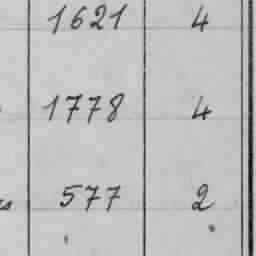 1621 4
1778 4
577 2